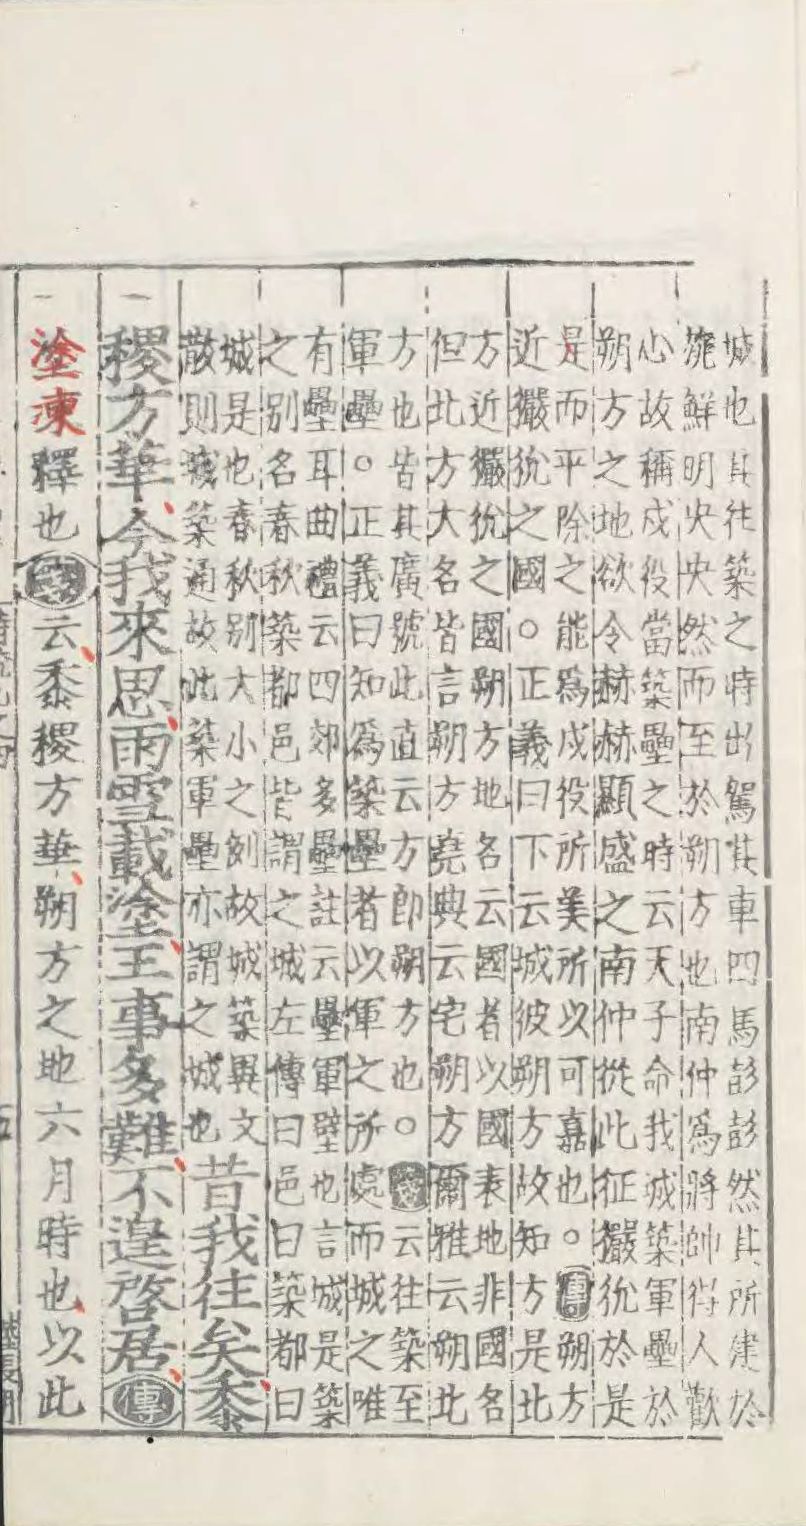 城也其往築之時出駕其車四馬彭彭然其所建於
旐鮮明央央然而至於朔方也南仲為將帥得人歡
心故稱戍役當築壘之時云天子命我城築軍壘於
朔方之地欲令赫赫顯盛之南仲從此征玁狁於是
是而平除之能為戍役所美所以可嘉也○傳朔方
近玁狁之國○正義曰下云城彼朔方故知方是北
方近玁狁之國朔方地名云國者以國表地非國名
但北方大名皆言朔方堯典云宅朔方爾雅云朔北
方也皆其廣號此直云方即朔方也○箋云往築至
軍壘○正義曰知為築壘者以軍之所處而城之唯
有壘耳曲禮云四郊多壘註云壘軍壁也言城是築
之別名春秋築都邑皆謂之城左傳曰邑曰築都曰
城是也春秋別大小之例故城築異文
散則城築通故此築軍壘亦謂之城也
昔我往矣黍
稷方華今我來思雨雪載塗王事多難不遑啓居傳
塗凍釋也箋云黍稷方華朔方之地六月時也以此